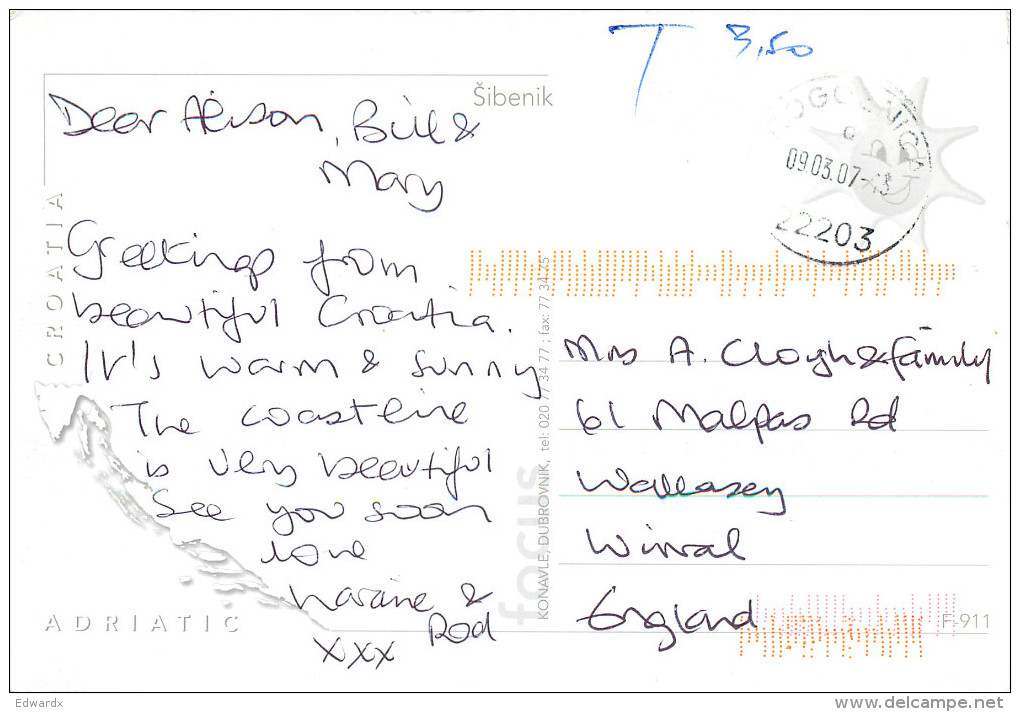 T 3,50
Šibenik
Dear Alison, Bill &
Mary
Greetings from
beautiful Croatia.
It's warm & sunny
The coastline
is very beautiful
See you soon
love
& Rod
xxx
CROATIA
ADRIATIC
focus
KONAVLE, DUBROVNIK, tel: 020 77 34 77 ; fax: 77 34 25
09.03.07
22203
Mrs A. Clough & family
61 Malpas Rd
Wallasey
Wirral
England
F-911
Edwardx
delcampe.net